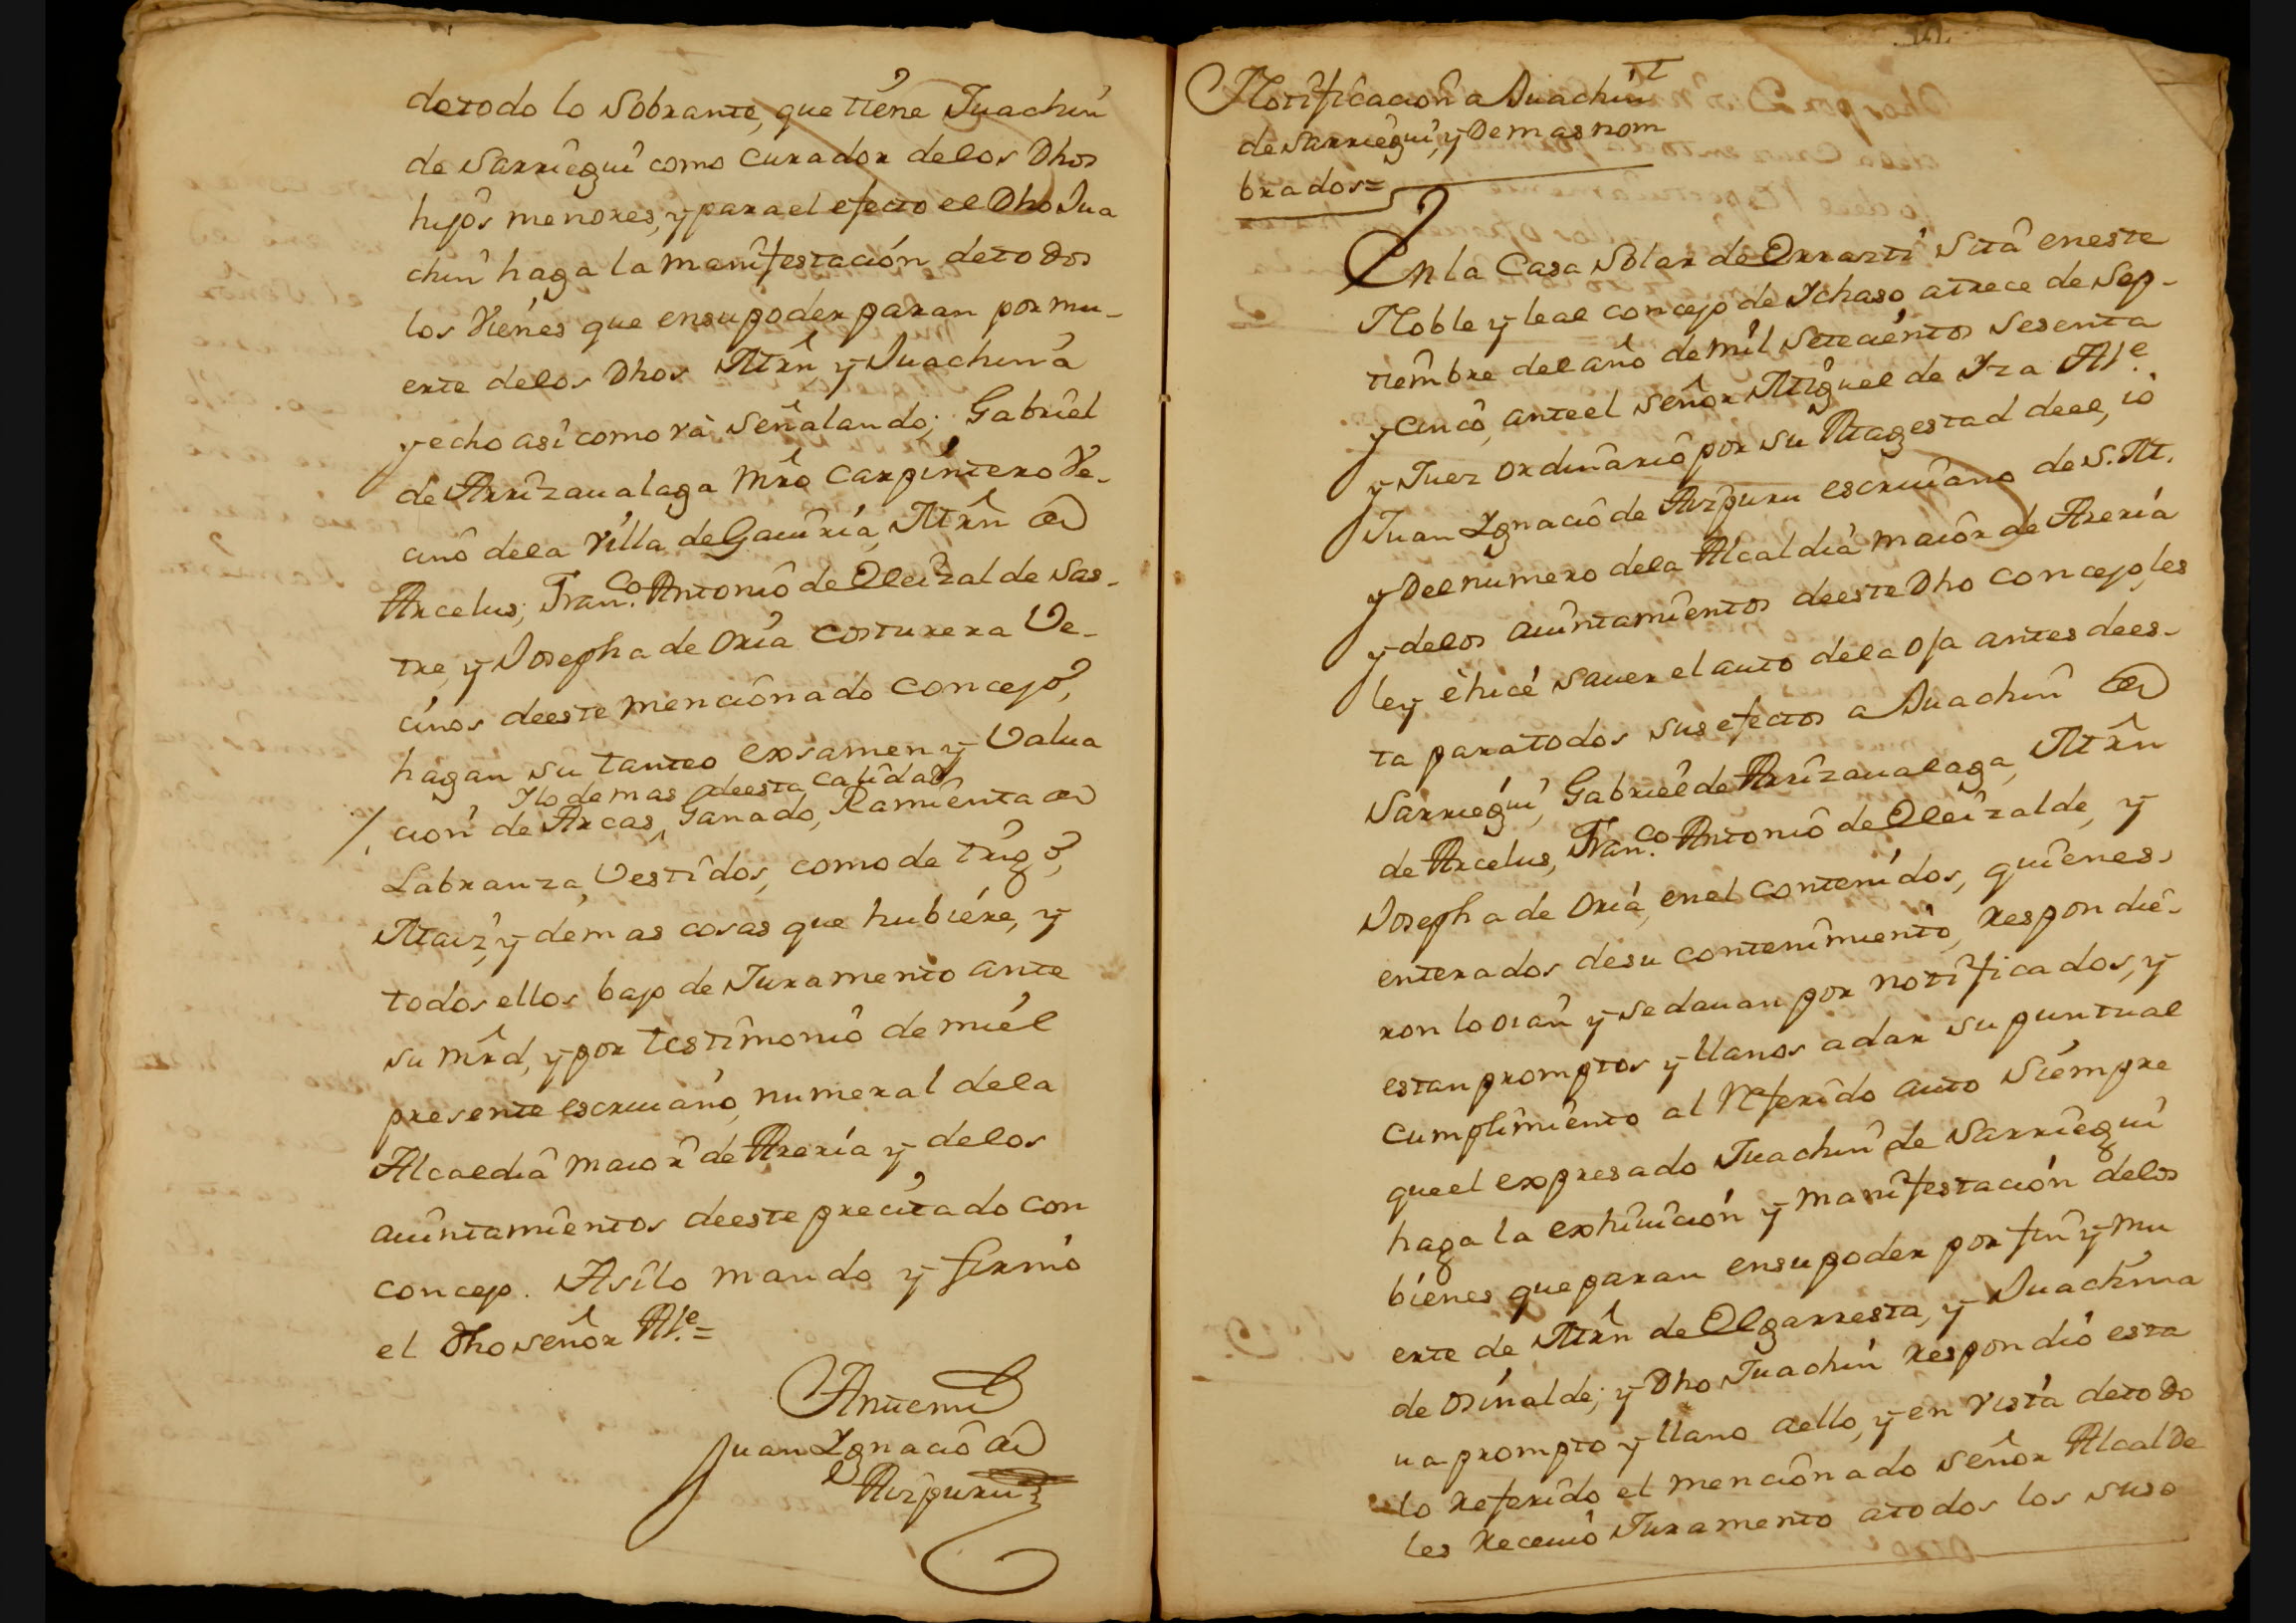 detodo lo sobrante, que tiene Juachin
de Sarriegui como curador delos Dhos
hijos menores, y para el efecto el Dho Jua
chin haga la manifestación detodos
los Vienes que ensu poder paran por mu-
erte delos Dhos Mrn y Juachina
y echo asi como va señalando; Gabriel
de Arrizaualaga Mro Carpintero Ve-
cino dela Villa de Gauiria, Mrn de
Arcelus; Franco. Antonio de Oleizalde Sas-
tre, y Josepha de Oria costurera Ve-
cinos deeste mencionado concejo,
hagan su tanteo exsamen y Valua
Ylodemas deesta calidad
/. cion de Arcas, Ganado, Ramienta de
Labranza, Vestidos, como de trigo,
Maiz, y demas cosas que hubiere, y
todos ellos bajo de Juramento ante
su mrd, y por testimonio de miel
presente escriuano numeral dela
Alcaldia maior de Areria y delos
auintamientos deeste precitado con
concejo. Asilo mando y firmó
el Dho señor Ale.=
Antemi
Juan Ygnacio de
Aizpuru
Notificacion a Juachin
de Sarriegui, y Demas nom
brados=
En la Casa Solar de Orrazti sita eneste
Noble y leal concejo de Ychaso atrece de Sep-
tiembre del año de mil setecientos sesenta
y cinco, anteel señor Miguel de Yza Ale.
y Juez ordinario por su Magestad deel, io
Juan Ygnacio de Aizpuru escriuano de S.M.
y Del numero dela Alcaldia maior de Areria
y delos auintamientos deeste Dho concejo, les
ley ê hicé sauer el auto dela oja antes dees-
ta paratodos sus efectos a Juachin de
Sarriegui, Gabriel de Arrizaualaga, Mrn
de Arcelus, Franco. Antonio de Oleizalde, y
Josepha de Oria, enel contenidos, quienes
enterados desu contenimiento, respondie-
ron lo oian y sedauan por notificados, y
estan promptos y llanos adar su puntual
cumplimiento al referido auto siempre
queel expresado Juachin de Sarriegui
haga la exhiuición y manifestación delos
bienes queparan ensupoder por fin y mu
erte de Mrn de Olgarresta, y Juachina
de Osinalde; y Dho Juachin respondió esta
ua prompto y llano aello, y en vista detodo
lo referido el mencionado señor Alcalde
les receuio Juramento atodos los suso